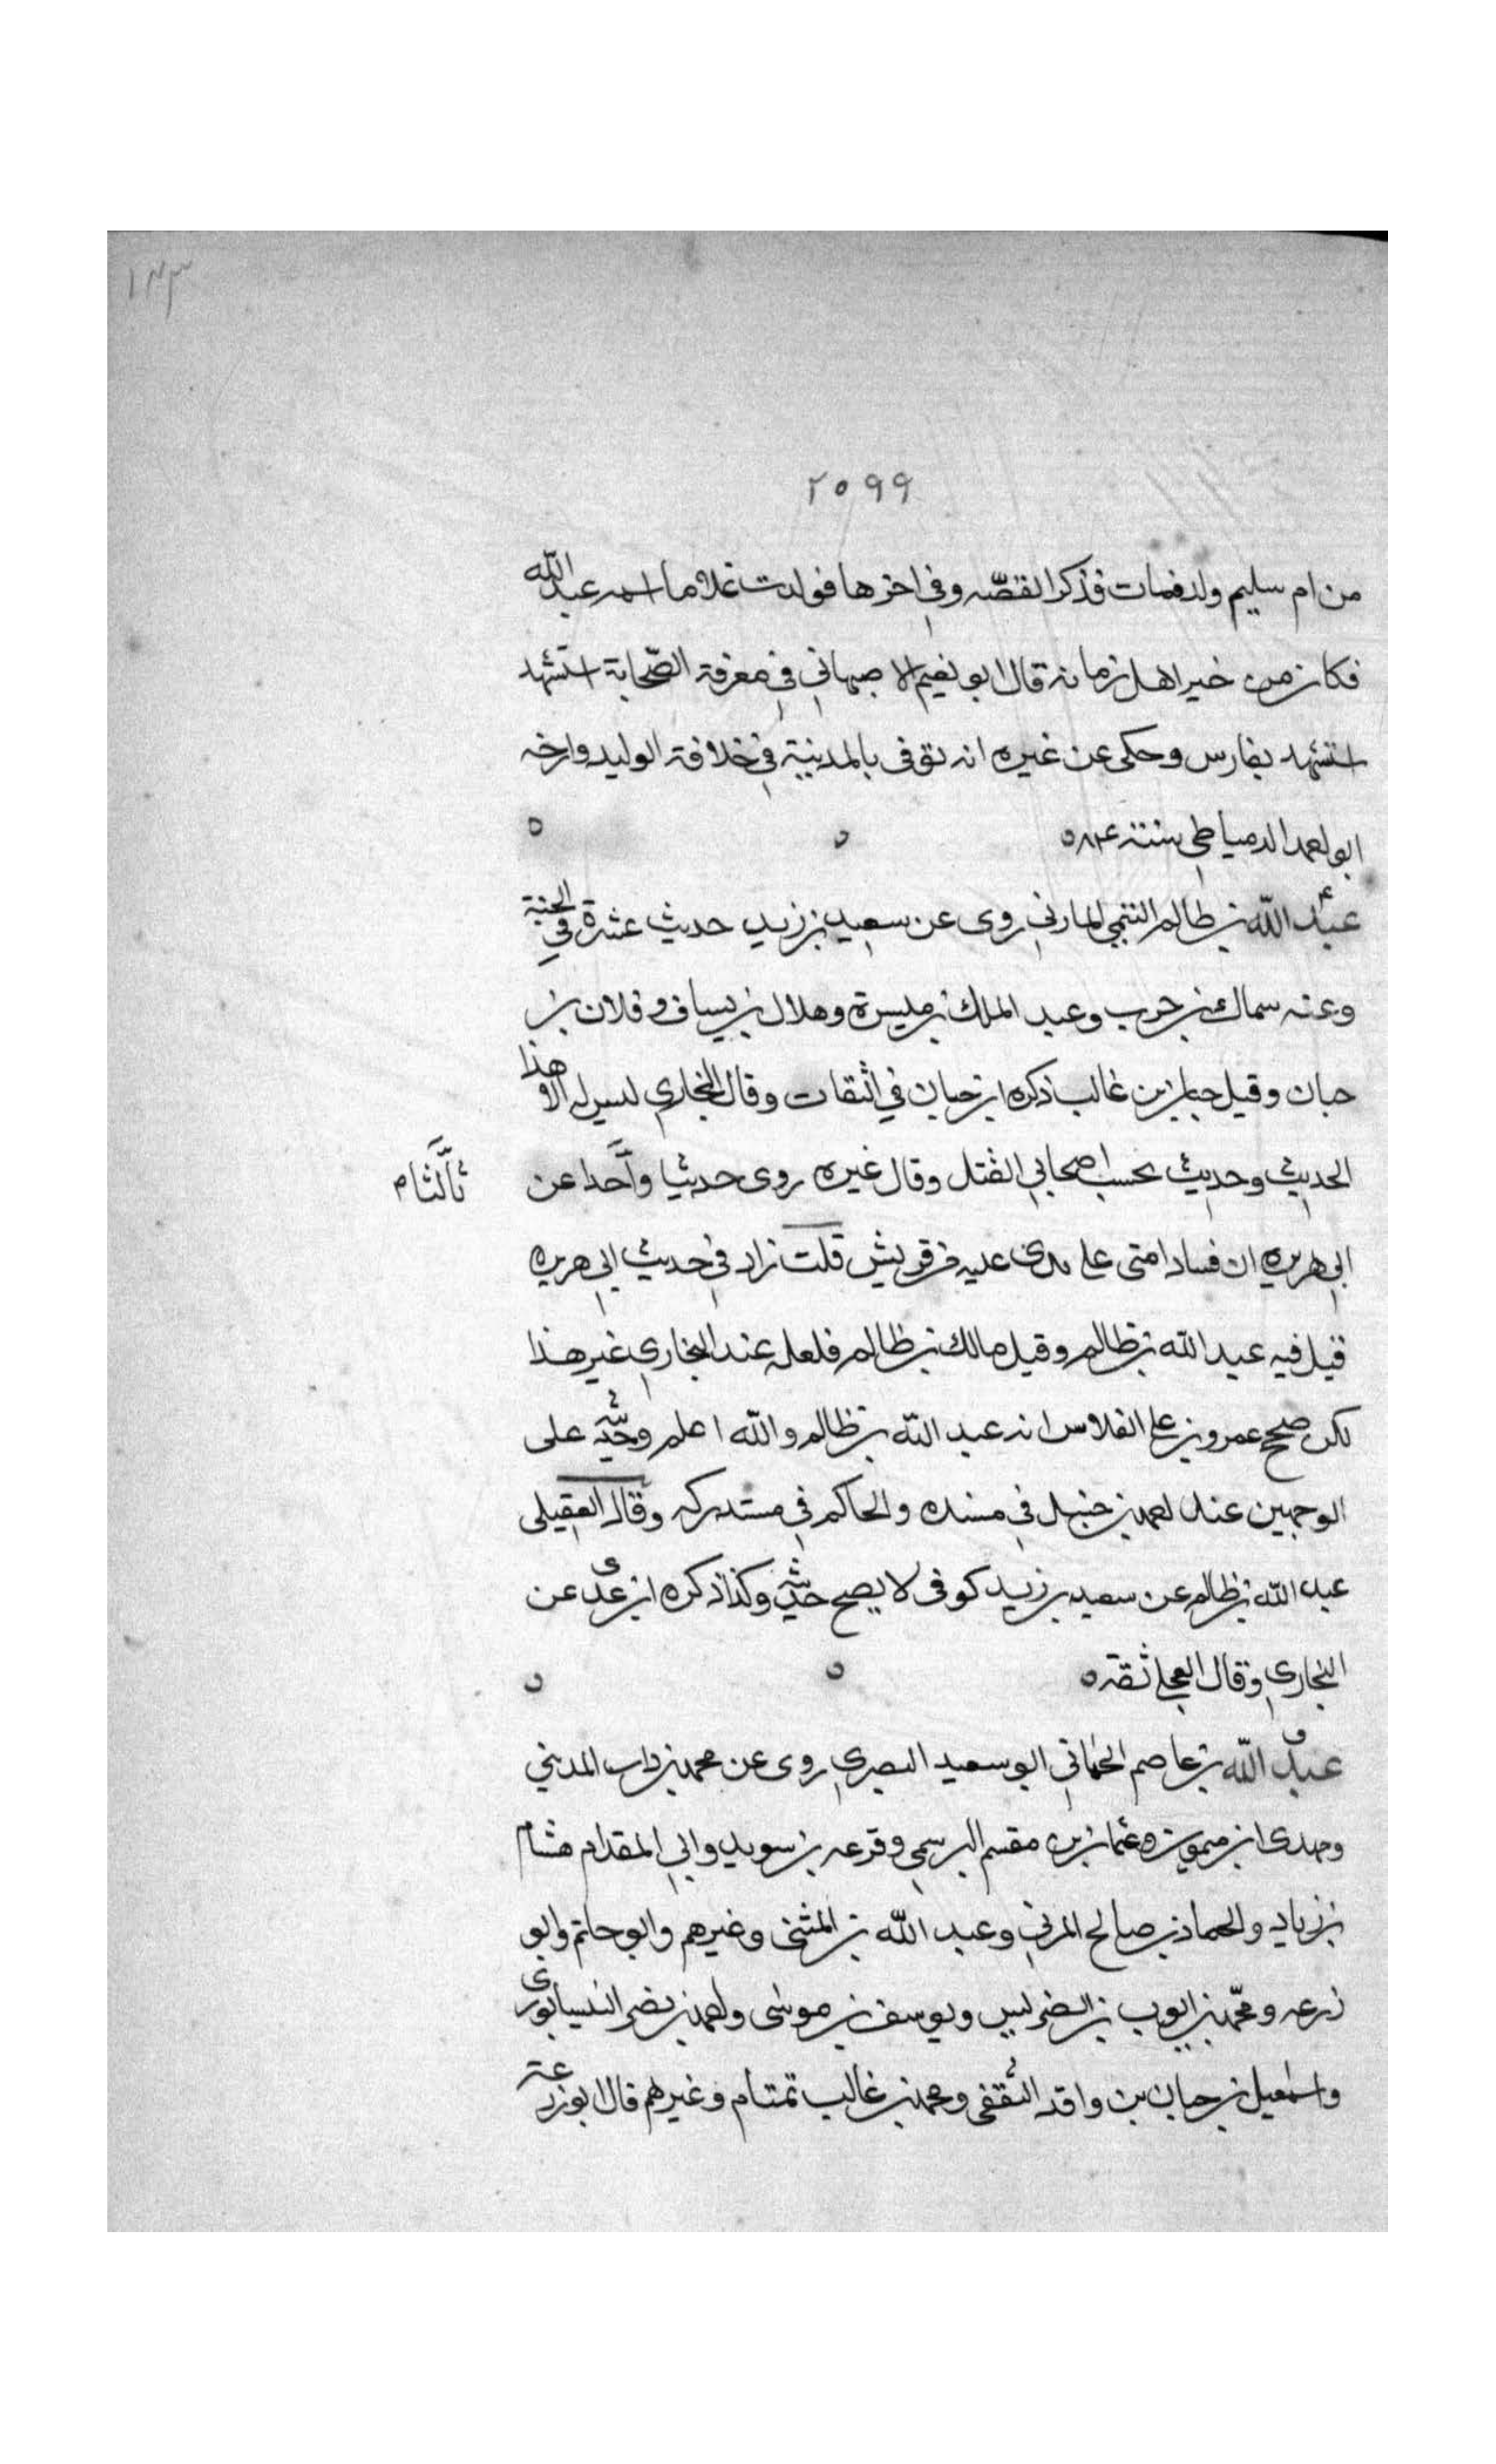 ١٤٣
٢٥٩٩
من ام سليم ولد فمات فذكر القصّه وفي اخرها فولدت غلاما اسمه عبد الله
فكان من خير اهل زمانه قال ابو نعيم الاصبهاني في معرفة الصّحابة استشهد
استشهد بفارس وحكى عن غيره انه توفى بالمدينة في خلافة الوليد وارخه
ابو احمد الدمياطي سنة ٨٤ ه
عبد الله بن ظالم التيمي المازني روى عن سعيد بن زيد حديث عشرة في الجنة
وعنه سماك بن حرب وعبد الملك بن ميسرة وهلال بن يساف وفلان بن
حبان وقيل حبان بن غالب ذكره ابن حبان في الثقات وقال البخاري ليس له الا هذا
الحديث وحديث بحسب اصحابي القتل وقال غيره روى حديثا واحدا عن
ابي هريره ان فساد امتي على يدي غلمة من قريش قلت زاد في حديث ابي هريره
قيل فيه عبد الله بن ظالم وقيل مالك بن ظالم فلعله عند البخاري غير هذا
لكن صحح عمرو بن علي الفلاس انه عبد الله بن ظالم والله اعلم وحديثه على
الوجهين عند احمد بن حنبل في مسنده والحاكم في مستدركه وقال العقيلى
عبد الله بن ظالم عن سعيد بن زيد كوفى لا يصح حديثه وكذا ذكره ابن عدى عن
البخاري وقال العجلي ثقة ه
عبد الله بن عاصم الحماني ابو سعيد البصري روى عن محمد بن داب المديني
ومهدى ابن ميمون وعثمان بن مقسم البرسمي وقزعه بن سويد وابي المقدام هشام
بن زياد والحماد بن صالح المري وعبد الله بن المثنى وغيرهم وابو حاتم وابو
زرعه ومحمد بن ايوب بن الضريس ويوسف بن موسى واحمد بن نصر النيسابورى
واسمعيل بن حبان بن واقد الثقفى ومحمد بن غالب تمتام وغيرهم قال ابو زرعة